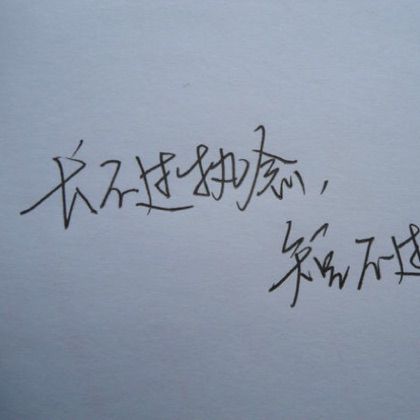 长不过执念，
短不过